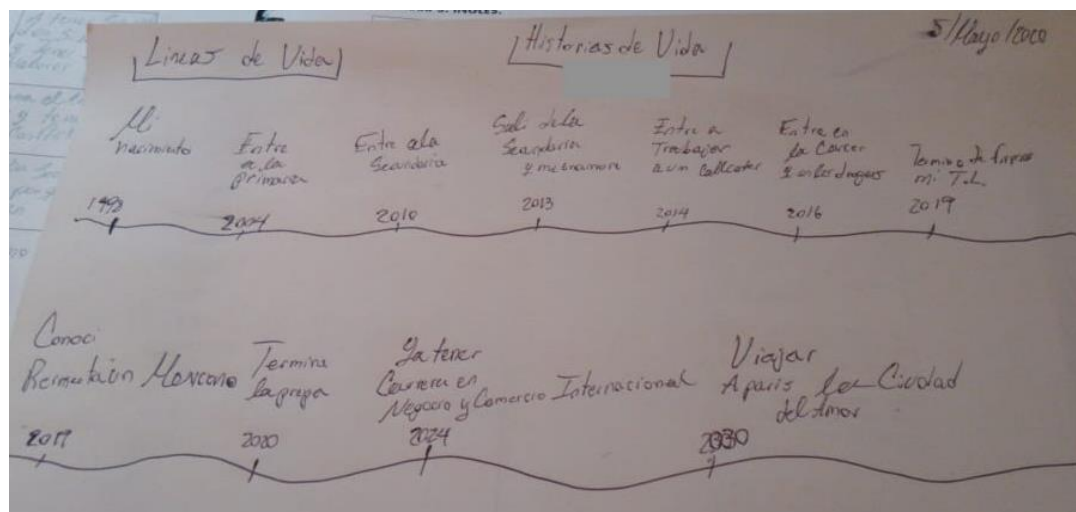 Lineas de Vida
Historias de Vida
5/Mayo/2020
Mi
nacimiento
1998
Entre
a la
primaria
2004
Entre ala
Secundaria
2010
Sali dela
Secundaria
y me enamore
2013
Entre a
Trabajar
a un Callcenter
2014
Entre en
la Carcer
y en las drogas
2016
Termino de firmar
mi T.L.
2019
Conoci
2019
Termina
la prepa
2020
Ya tener
Carrera en
Negocio y Comercio Internacional
2024
Viajar
A paris la Ciudad
del Amor
2030